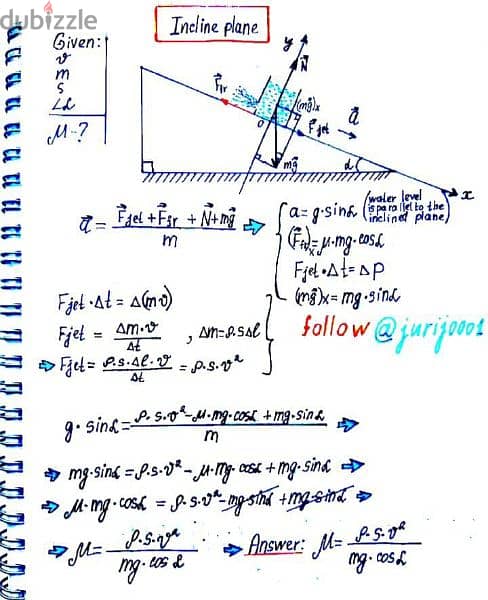 dubizzle
Incline plane
Given:
v
m
S
∠α
μ-?
y
N⃗
F⃗fr
(mg⃗)x
O
F⃗jet
a⃗
mg⃗
α
x
a⃗ = (F⃗jet + F⃗fr + N⃗ + mg⃗) / m ⇒
a = g·sinα (water level is parallel to the inclined plane)
(F⃗fr)x = μ·mg·cosα
Fjet·Δt = Δp
(mg⃗)x = mg·sinα
Fjet·Δt = Δ(m·v)
Fjet = Δm·v / Δt , Δm = ρ.S.Δl
⇒ Fjet = ρ.S.Δl.v / Δt = ρ.S.v²
follow @jurij0001
g·sinα = (ρ.S.v² - μ.mg.cosα + mg.sinα) / m ⇒
⇒ mg·sinα = ρ.S.v² - μ.mg.cosα + mg.sinα ⇒
⇒ μ.mg.cosα = ρ.S.v² - mg sinα + mg sinα ⇒
⇒ μ = ρ.S.v² / mg.cosα ⇒ Answer: μ = ρ.S.v² / mg.cosα